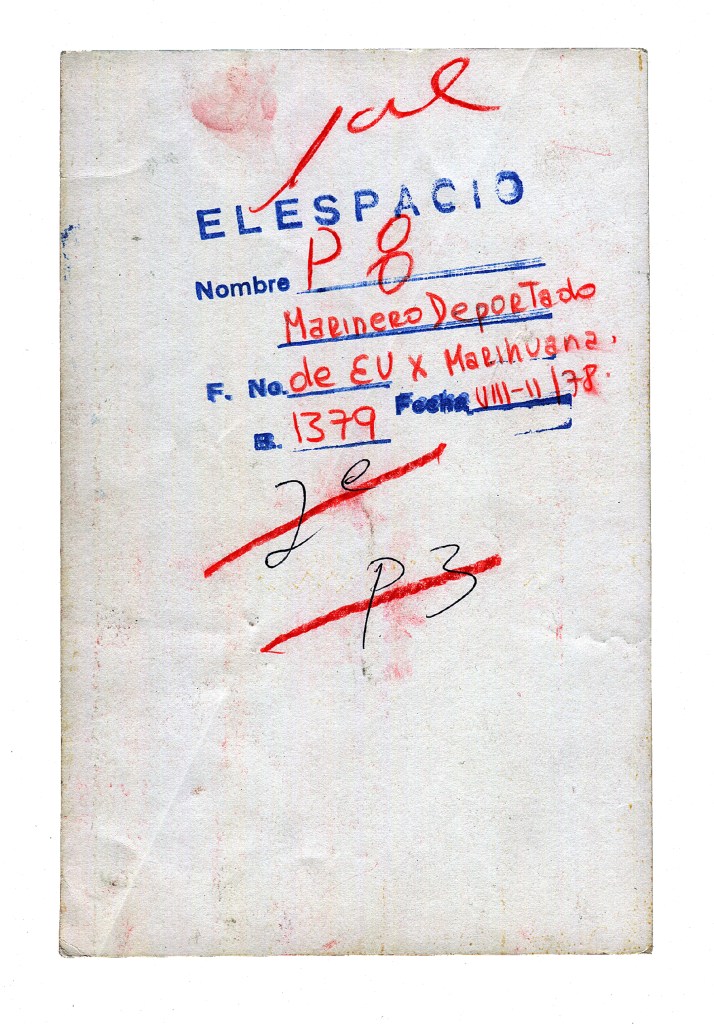 EL ESPACIO
Nombre P 8
Marinero Deportado
F. No. de EU x Marihuana.
B. 1379 Fecha VIII-11/78.
2e
P3